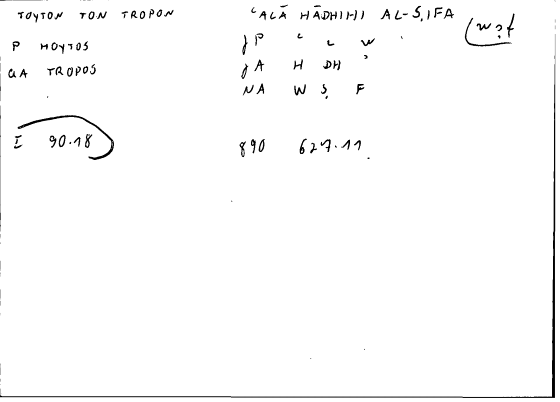 TOYTON TON TROPON ʿALĀ HĀDHIHI AL-Ṣ,IFA (wṣf
P HOYTOS JP ʿ L W
QA TROPOS JA H DH ʾ
NA W Ṣ F
I 90.18 890 627.11